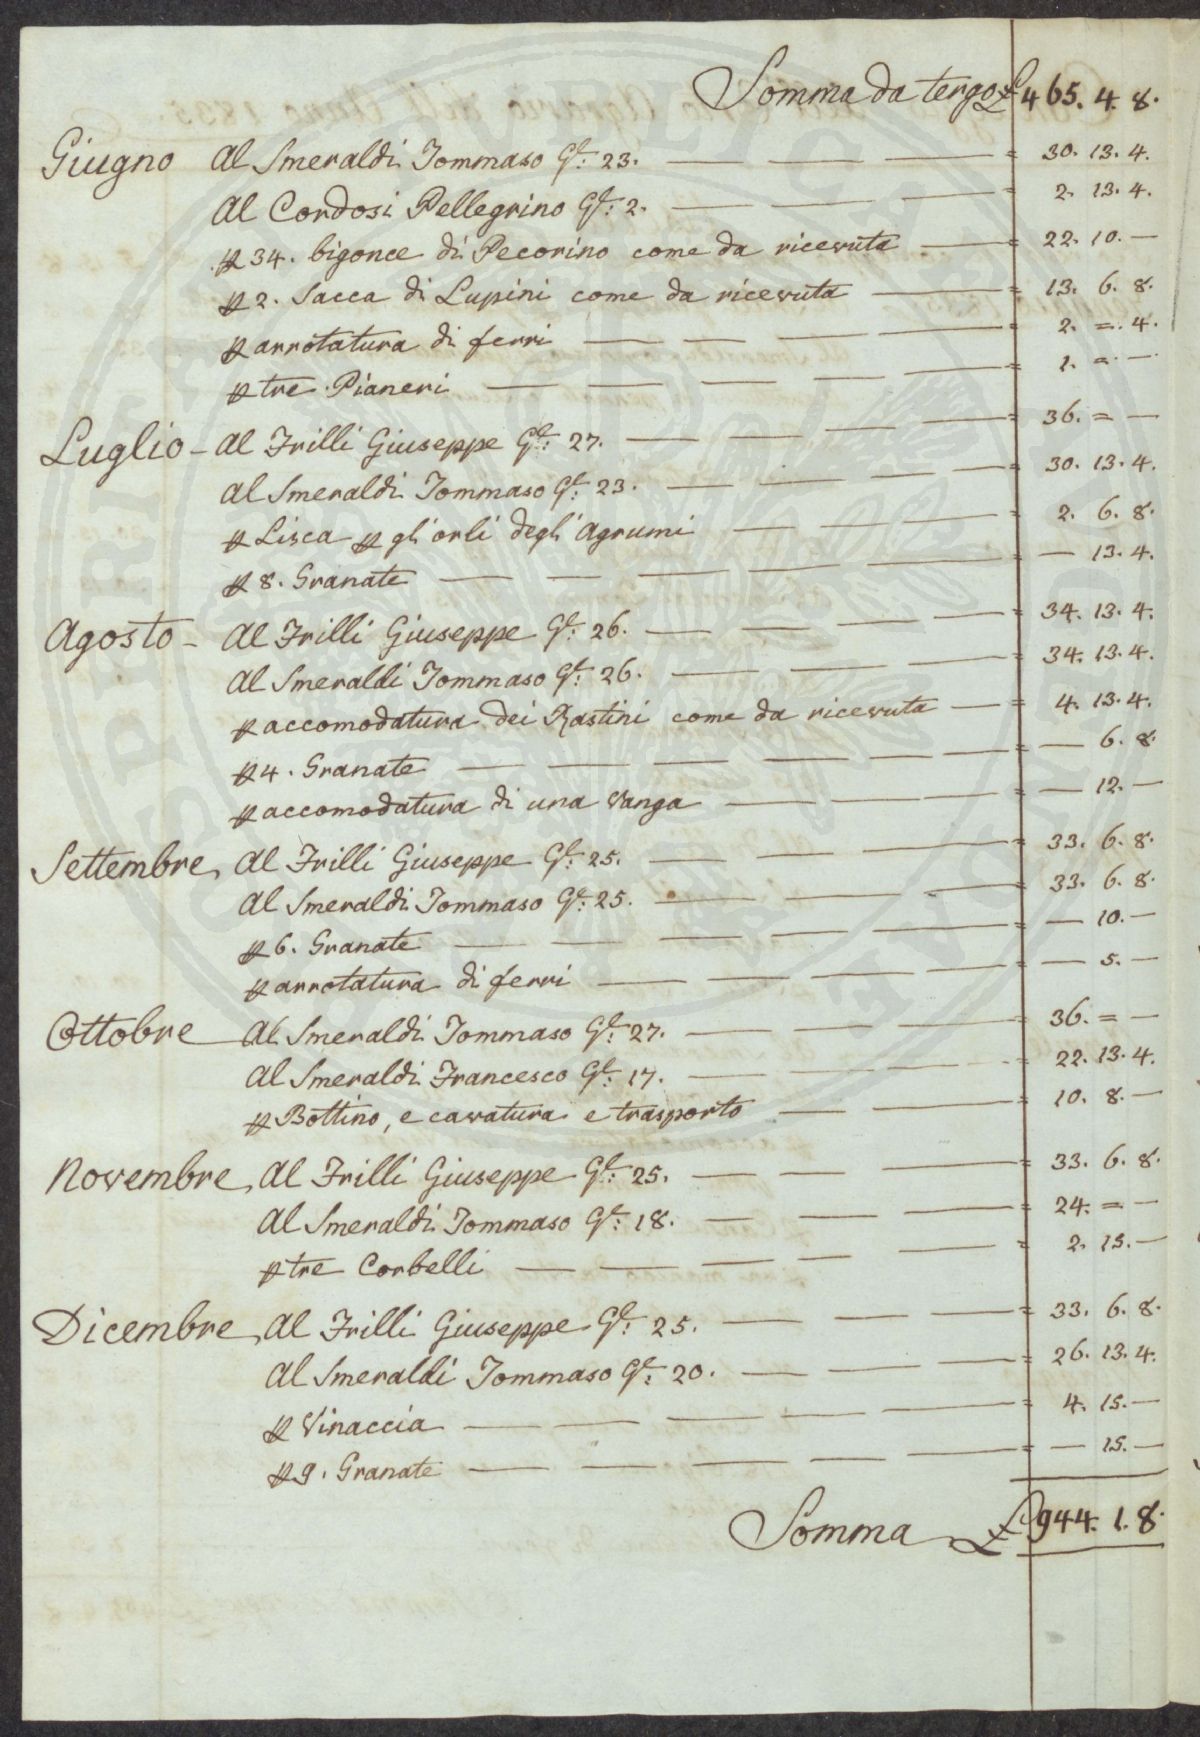 Somma da tergo £ 465. 4. 8.
Giugno Al Smeraldi Tommaso Gte: 23. — — — = 30. 13. 4.
Al Cordosi Pellegrino Gte: 2. — — — = 2. 13. 4.
p 34. bigonce di Pecorino come da ricevuta — = 22. 10. —
p 2. Sacca di Lupini come da ricevuta — = 13. 6. 8.
p arrotatura di ferri — — — — = 2. =. 4.
p tre Pianeri — — — — — = 1. =. —
Luglio - Al Frilli Giuseppe Gte: 27. — — — — = 36. = —
Al Smeraldi Tommaso Gte: 23. — — — = 30. 13. 4.
p Lisca p gli orli degli Agrumi — — — = 2. 6. 8.
p 8. Granate — — — — — = — 13. 4.
Agosto - Al Frilli Giuseppe Gte: 26. — — — — = 34. 13. 4.
Al Smeraldi Tommaso Gte: 26. — — — = 34. 13. 4.
p accomodatura dei Rastini come da ricevuta — = 4. 13. 4.
p 4. Granate — — — — — = — 6. 8.
p accomodatura di una Vanga — — — = — 12. —
Settembre, Al Frilli Giuseppe Gte: 25. — — — — = 33. 6. 8.
Al Smeraldi Tommaso Gte: 25. — — — = 33. 6. 8.
p 6. Granate — — — — — = — 10. —
p arrotatura di ferri — — — — = — 5. —
Ottobre Al Smeraldi Tommaso Gte: 27. — — — = 36. = —
Al Smeraldi Francesco Gte: 17. — — — = 22. 13. 4.
p Bottino, e cavatura e trasporto — — = 10. 8. —
Novembre, Al Frilli Giuseppe Gte: 25. — — — = 33. 6. 8.
Al Smeraldi Tommaso Gte: 18. — — — = 24. = —
p tre Corbelli — — — — — = 2. 15. —
Dicembre, Al Frilli Giuseppe Gte: 25. — — — = 33. 6. 8.
Al Smeraldi Tommaso Gte: 20. — — — = 26. 13. 4.
p Vinaccia — — — — — = 4. 15. —
p 9. Granate — — — — — = — 15. —
Somma £ 944. 1. 8.